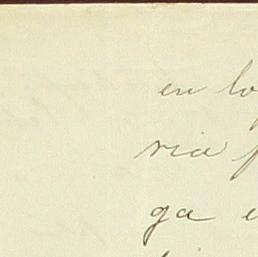 en lo
ria p
ga e